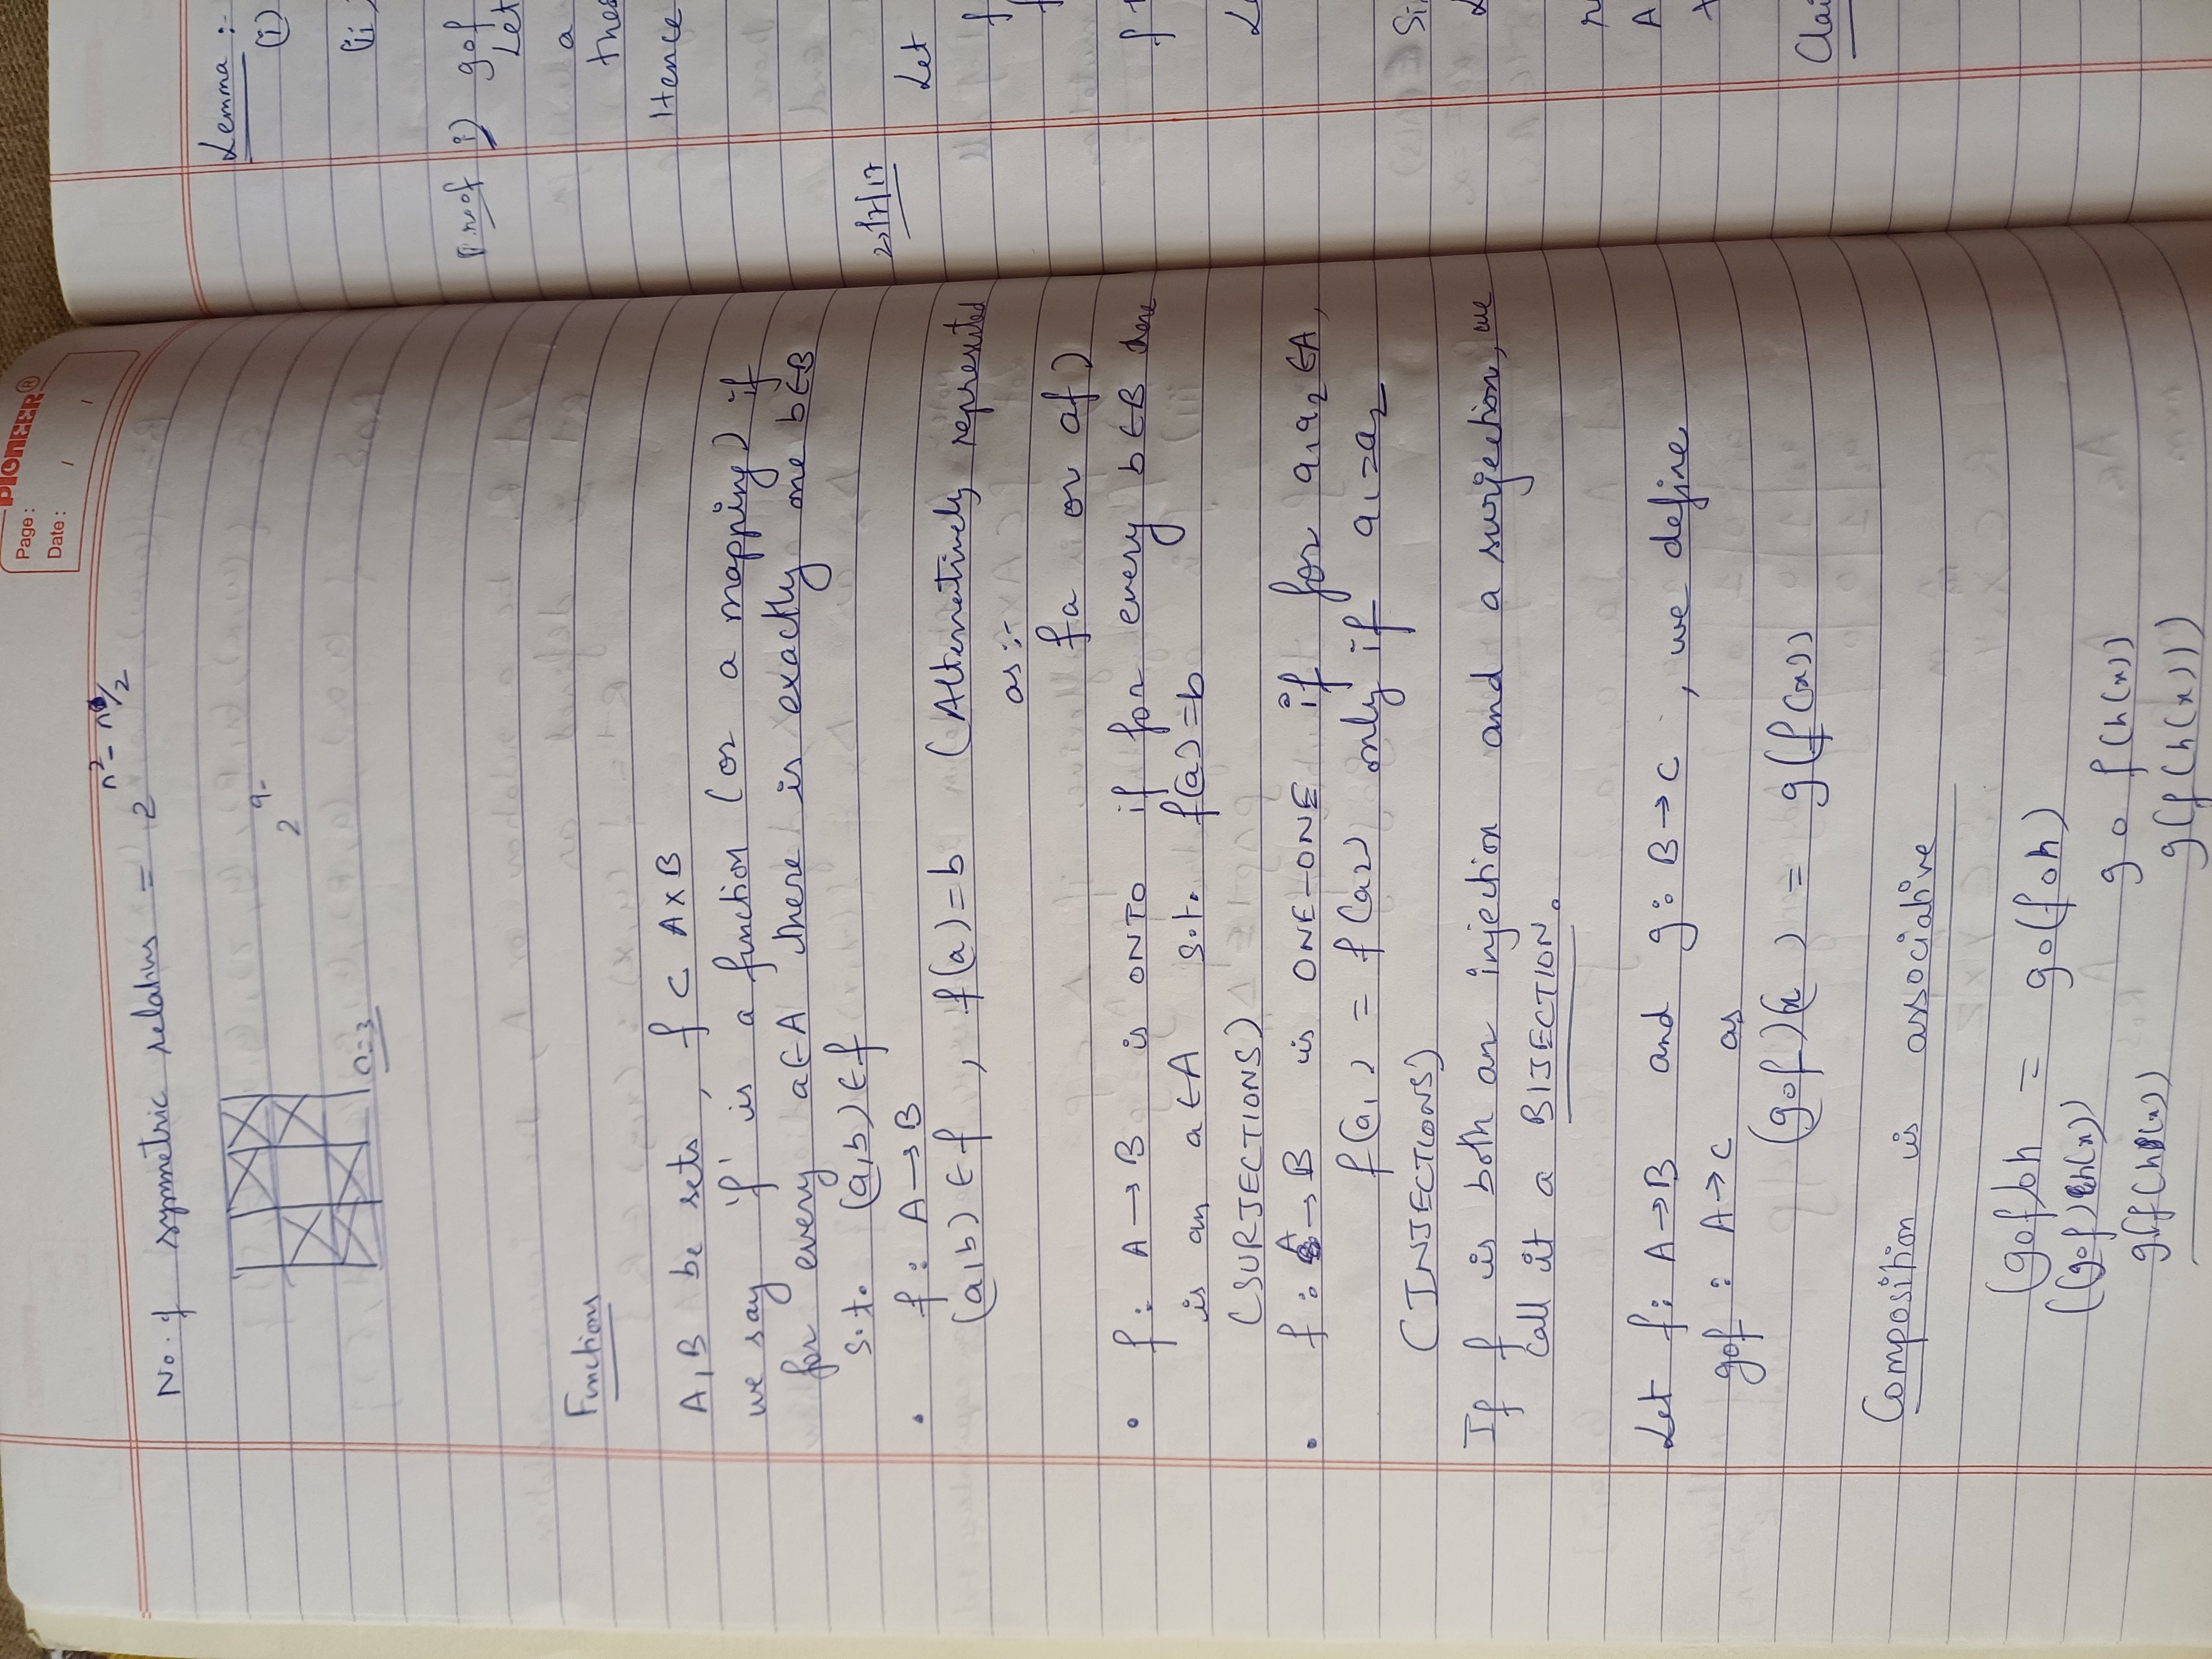 PIONEER®
Page:
Date: / /
No. of symmetric relations = 2^(n²-n/2)
2^9-
n=3
Functions
A, B be sets , f ⊂ A×B
we say 'f' is a function (or a mapping) if
for every a∈A there is exactly one b∈B
s.t. (a,b) ∈ f
• f: A→B
(a,b) ∈ f , f(a)=b (Alternatively represented
as :-
fa or af)
• f: A→B is ONTO if for every b∈B there
is an a∈A s.t. f(a)=b
(SURJECTIONS)
• f: A→B is ONE-ONE if for a₁,a₂∈A,
f(a₁) = f(a₂) only if a₁=a₂
(INJECTIONS)
If f is both an injection and a surjection, we
call it a BIJECTION.
Let f: A→B and g: B→C , we define
gof : A→C as
(gof)(x) = g(f(x))
Composition is associative
(gof)oh = go(foh)
(gof)(h(x)) go f(h(x))
g(f(h(x)) g(f(h(x)))
Lemma :
(i)
(ii)
Proof i) gof
Let
a
Hence
Let
f
A